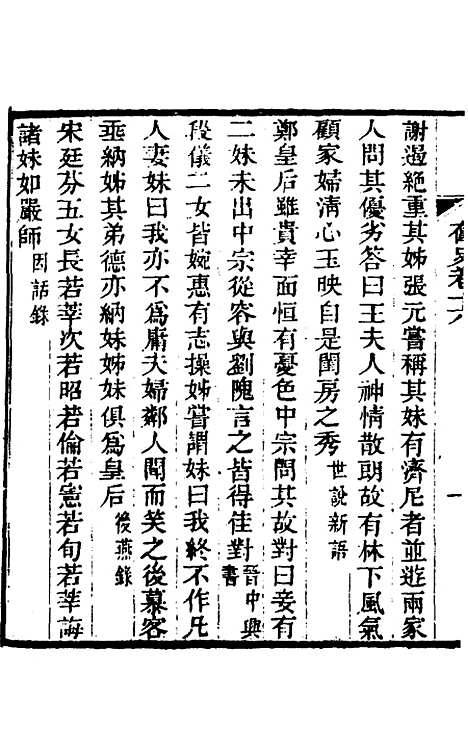 謝遏絶重其姊張元嘗稱其妹有濟尼者並遊兩家
人問其優劣答曰王夫人神情散朗故有林下風氣
顧家婦清心玉映自是閨房之秀世說新語
鄭皇后雖貴幸面恒有憂色中宗問其故對曰妾有
二妹未出中宗從容與劉隗言之皆得佳對晉中興書
段儀二女皆婉惠有志操姊嘗謂妹曰我終不作凡
人妻妹曰我亦不爲庸夫婦鄰人聞而笑之後慕容
垂納姊其弟德亦納妹姊妹俱爲皇后後燕錄
宋廷芬五女長若莘次若昭若倫若憲若旬若莘誨
諸妹如嚴師因話錄